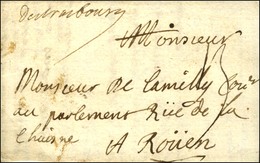 De strasbourg
Monsieur
Monsieur De Camilly Con.er
au parlement Rüe de la
Chaisne
A Roüen